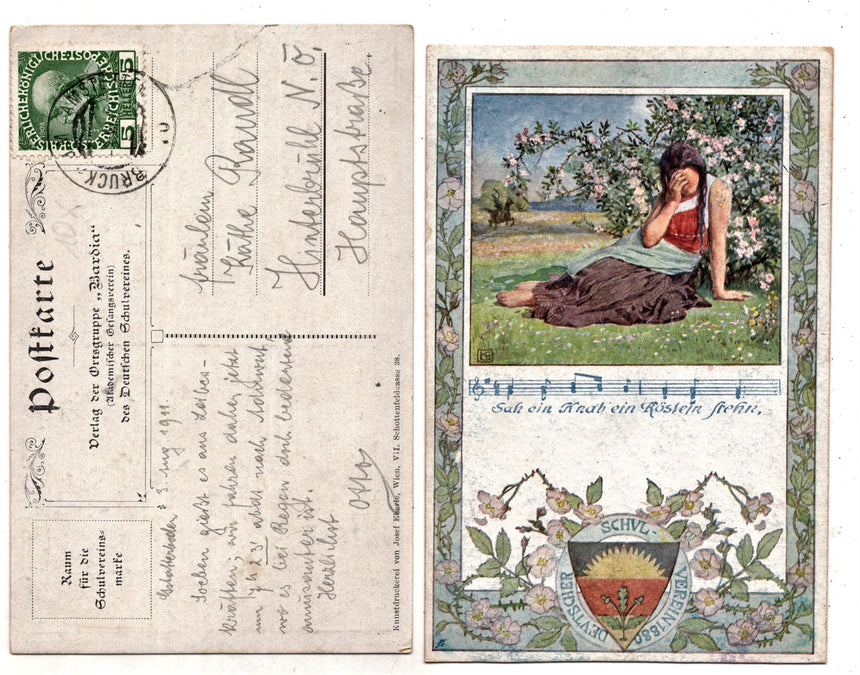 KAISERLICHE KÖNIGLICHE ÖSTERREICHISCHE POST
5 HELLER 5
BRUCK
Postkarte
Verlag der Ortsgruppe „Bardia“
(Akademischer Gesangsverein)
des Deutschen Schulvereines.
Raum
für die
Schulvereins-
marke
Fräulein
Käthe Randl
Hinterbrühl N. Ö.
Hauptstraße.
3. Aug 1911
Soeben gießt es aus Leibes-
kräften; wir fahren daher jetzt
um 1/4 23' ab nach
wo es bei Regen doch bedeutend
amüsanter ist.
Otto
Kunstdruckerei von Josef Eberle, Wien, VII. Schottenfeldgasse 38.
Sah ein Knab ein Röslein stehn,
DEVTSCHER SCHVL-VEREIN 1880